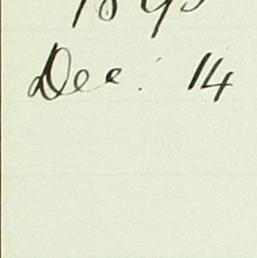 Dec. 14